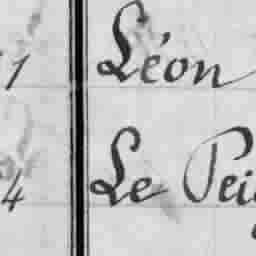 1 Léon
4 Le Pei